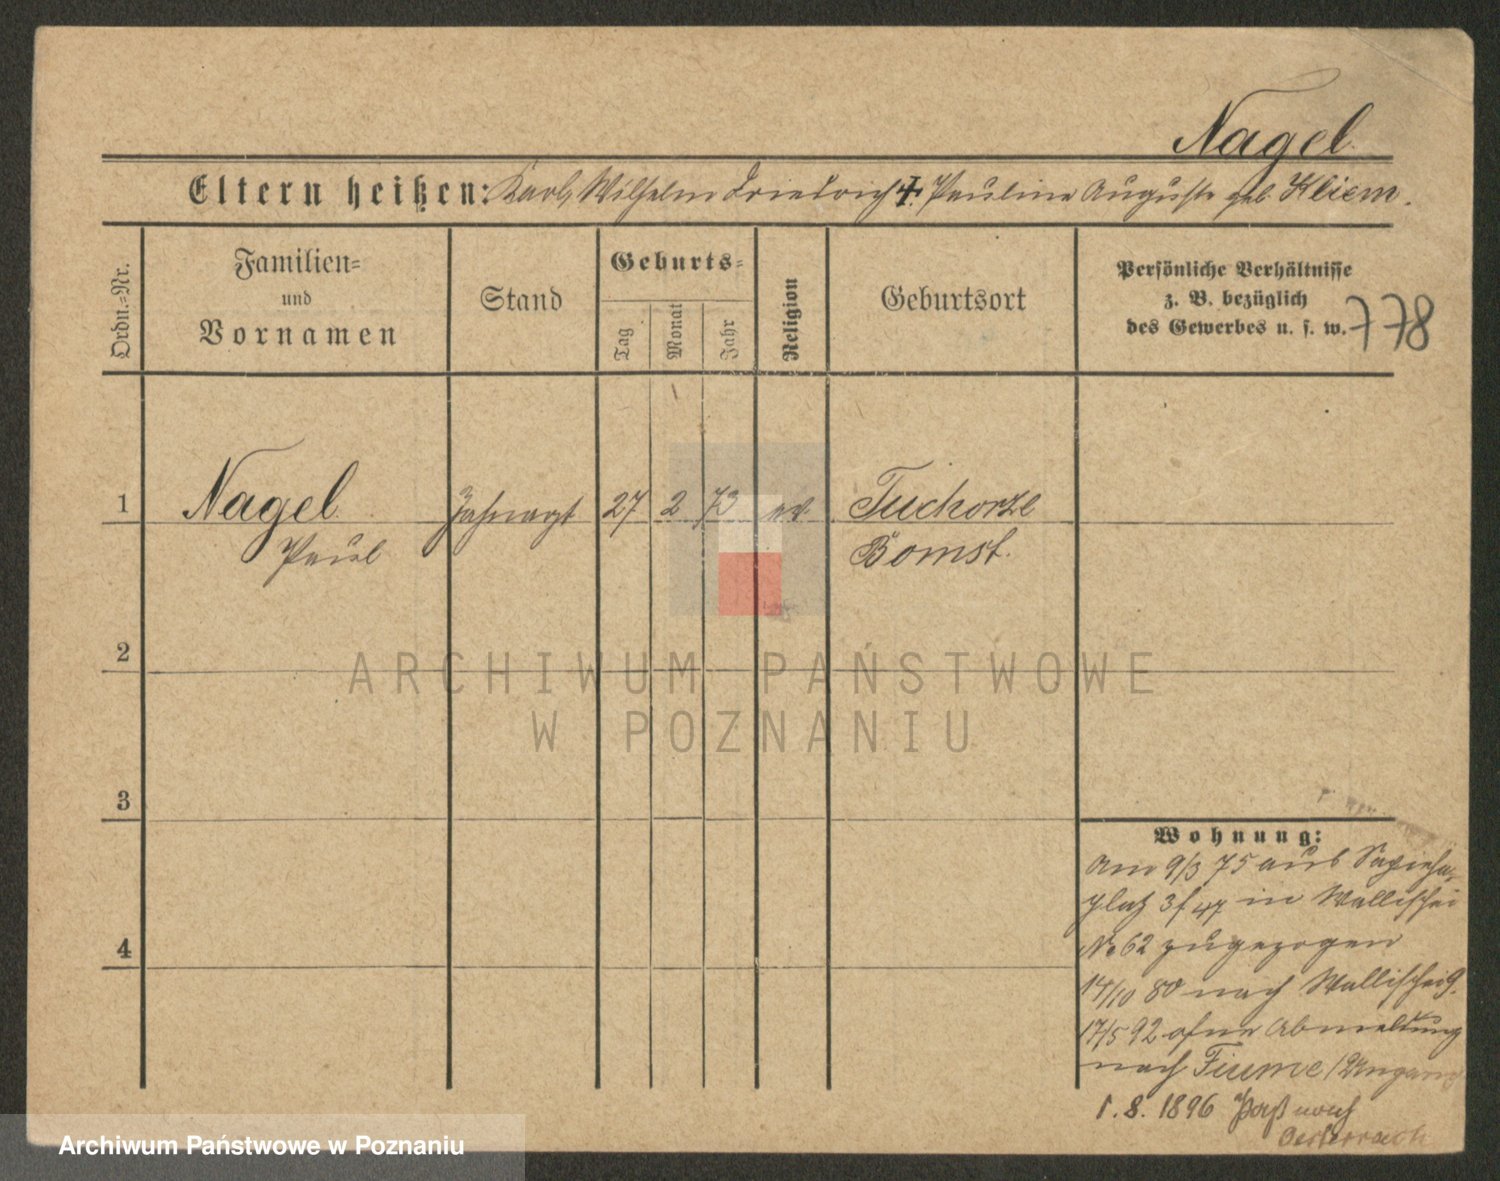 Nagel
Eltern heißen: Karl, Wilhelm Friedrich ✝. Pauline Auguste geb. Kliem.
Ordn.=Nr.
Familien=
und
Vornamen
Stand
Geburts=
Tag
Monat
Jahr
Religion
Geburtsort
Persönliche Verhältnisse
z. B. bezüglich
des Gewerbes u. s. w.
778
1 Nagel Zahnarzt 27 2 73 ev. Tuchorze
Paul Bomst.
2
3
4
Wohnung:
Am 9/3 75 aus Sapieha-
platz 3 f 47 in Wallischei
No 62 zugezogen
14/10 80 nach Wallischei 9.
17/5 92 ohne Abmeldung
nach Fiume /Ungarn
1. 8. 1896 Paß nach
Oesterreich
ARCHIWUM PAŃSTWOWE
W POZNANIU
Archiwum Państwowe w Poznaniu